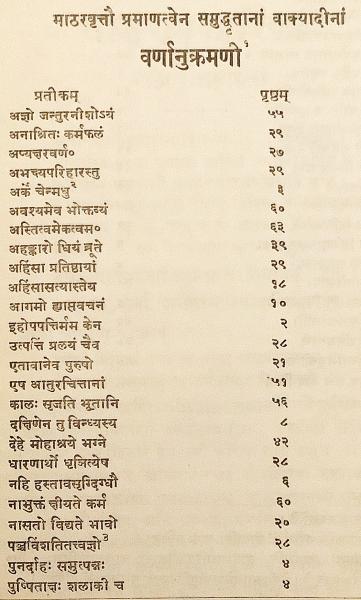 माठरवृत्तौ प्रमाणत्वेन समुद्धृतानां वाक्यादीनां
वर्णानुक्रमणी१
प्रतीकम् पृष्ठम्
अज्ञो जन्तुरनीशोऽयं ५५
अनाश्रितः कर्मफलं २९
अप्यक्षरवर्ण० २७
अभक्ष्यपरिहारस्तु २९
अर्के चेन्मधु२ ३
अवश्यमेव भोक्तव्यं ६०
अस्तित्वमेकत्वम० ६३
अहङ्कारो धियं ब्रूते ३९
अहिंसा प्रतिष्ठायां २९
अहिंसासत्यास्तेय १८
आगमो ह्याप्तवचनं १०
इहोपपत्तिर्मम केन २
उत्पत्तिं प्रलयं चैव २८
एतावानेव पुरुषो २१
एष आतुरचित्तानां ५१
कालः सृजति भूतानि ५६
दक्षिणेन तु विन्ध्यस्य ८
देहे मोहाश्रये भग्ने ४२
धारणार्थो धृञित्येष २८
नहि हस्तावसृग्दिग्धौ ६
नाभुक्तं क्षीयते कर्म ६०
नासतो विद्यते भावो २०
पञ्चविंशतितत्त्वज्ञो३ २८
पुनर्दाहः समुत्पन्नः ४
पुष्पिताक्षः शलाकी च ४